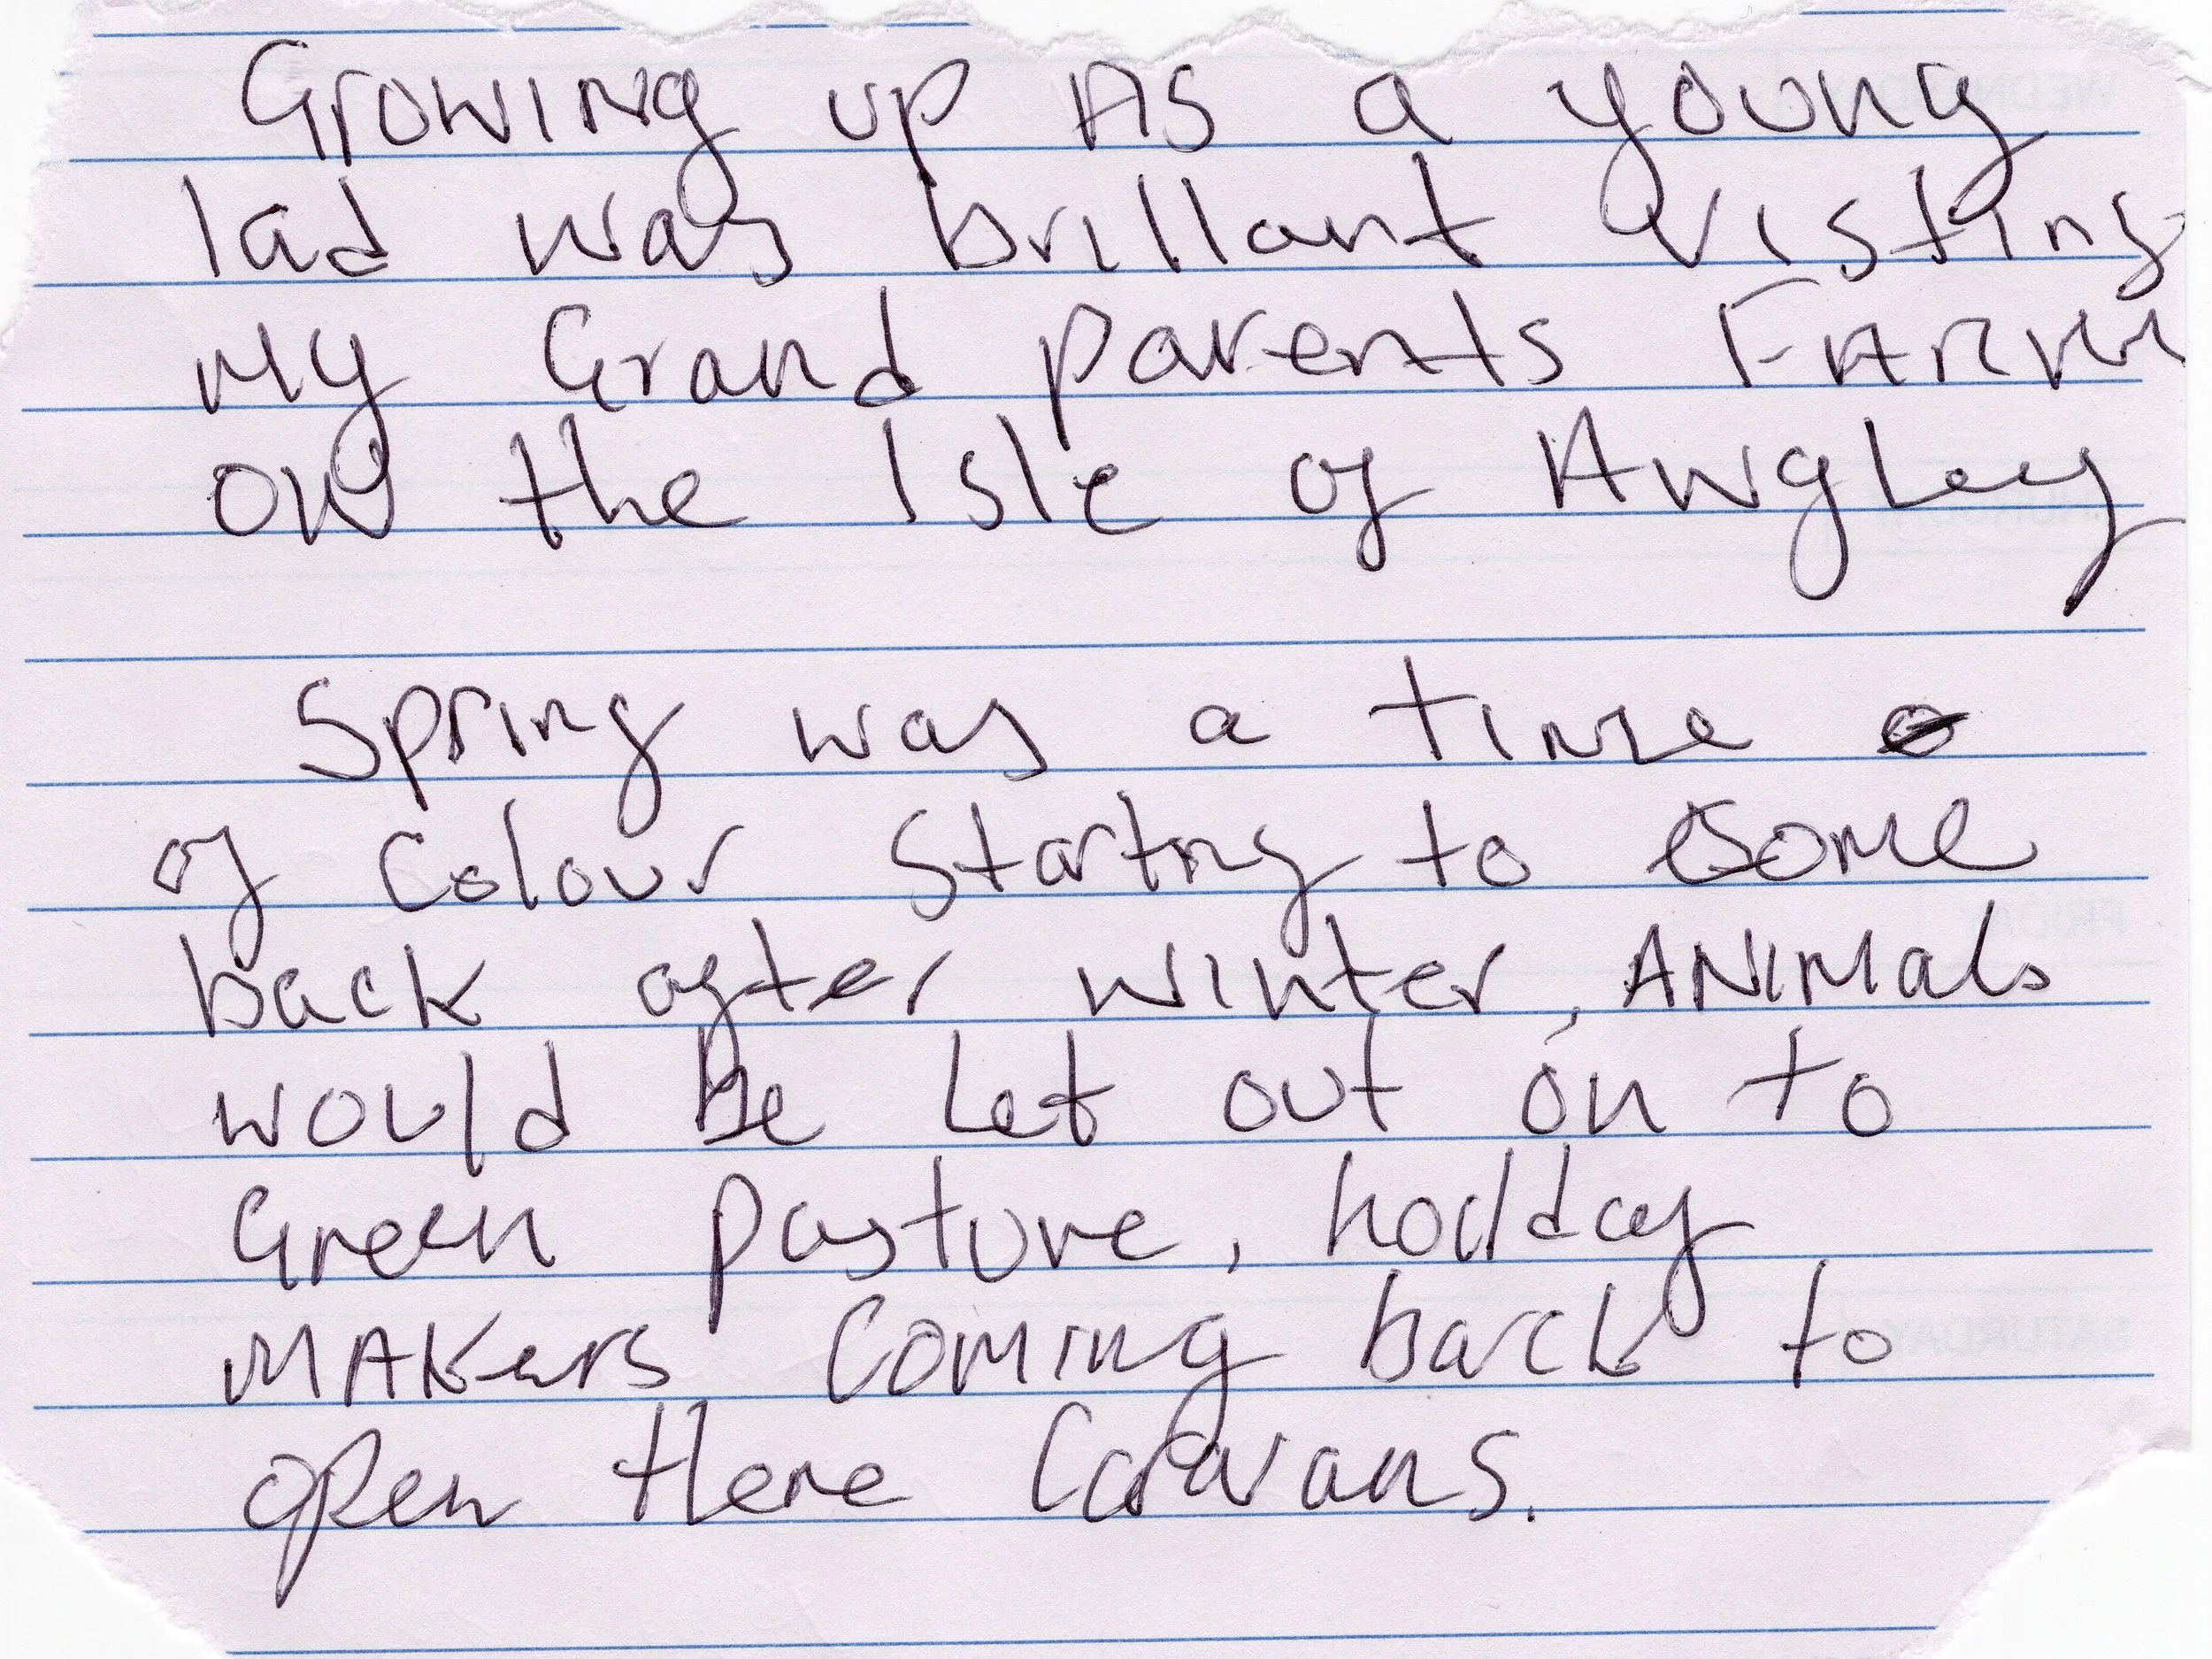 Growing up As a young
lad was brillant visting
My Grand parents FARM
ON the Isle of Angley
Spring was a time
of Colour starting to come
back after winter, ANIMals
would be Let out on to
Green pasture, holiday
MAKers Coming back to
open there Caravans.